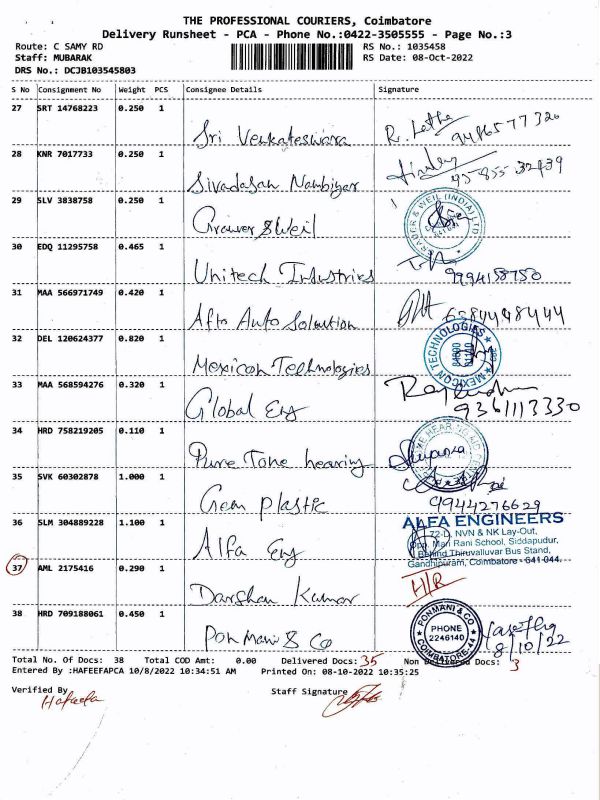 THE PROFESSIONAL COURIERS, Coimbatore
Delivery Runsheet - PCA - Phone No.:0422-3505555 - Page No.:3
Route: C SAMY RD RS No.: 1035458
Staff: MUBARAK RS Date: 08-Oct-2022
DRS No.: DCJB103545803
S No Consignment No Weight PCS Consignee Details Signature
27 SRT 14768223 0.250 1
Sri Venkateswara R. Latha 9486577320
28 KNR 7017733 0.250 1
Sivadasan Nambiyar 95855 32439
29 SLV 3838758 0.250 1
Grawer & Weil GRAUER & WEIL (INDIA) LTD
30 EDQ 11295758 0.465 1
Unitech Industries 9994158750
31 MAA 566971749 0.420 1
Afto Auto Solaution 6384448444
32 DEL 120624377 0.820 1
Mexicon Technologies MEXICON TECHNOLOGIES
33 MAA 568594276 0.320 1
Global Eng 9361113330
34 HRD 758219205 0.110 1
Pure Tone hearing
35 SVK 60302878 1.000 1
Gem plastic 9944276629
36 SLM 304889228 1.100 1
ALFA ENGINEERS
72-D, NVN & NK Lay-Out,
Opp. Mari Rani School, Siddapudur,
Alfa Eng Behind Thiruvalluvar Bus Stand,
Gandhipuram, Coimbatore - 641 044.
37 AML 2175416 0.290 1
Darshan Kumar H/R
38 HRD 709188061 0.450 1
Ponmani & Co PONMANI & CO PHONE 2246140 COIMBATORE-44 8/10/22
Total No. Of Docs: 38 Total COD Amt: 0.00 Delivered Docs: 35 Non Delivered Docs: 3
Entered By :HAFEEFAPCA 10/8/2022 10:34:51 AM Printed On: 08-10-2022 10:35:25
Verified By Staff Signature
Hafeefa